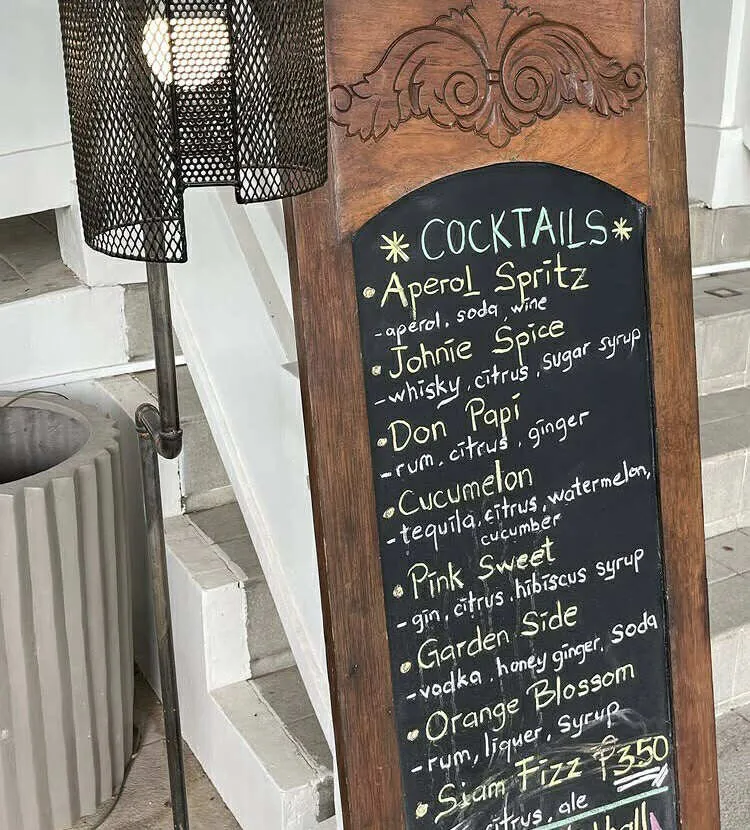 * COCKTAILS *
• Aperol Spritz
- aperol, soda, wine
• Johnie Spice
- whisky, citrus, sugar syrup
• Don Papi
- rum, citrus, ginger
• Cucumelon
- tequila, citrus, watermelon,
cucumber
• Pink Sweet
- gin, citrus, hibiscus syrup
• Garden Side
- vodka, honey ginger, soda
• Orange Blossom
- rum, liquer, syrup
• Siam Fizz ₱350
citrus, ale